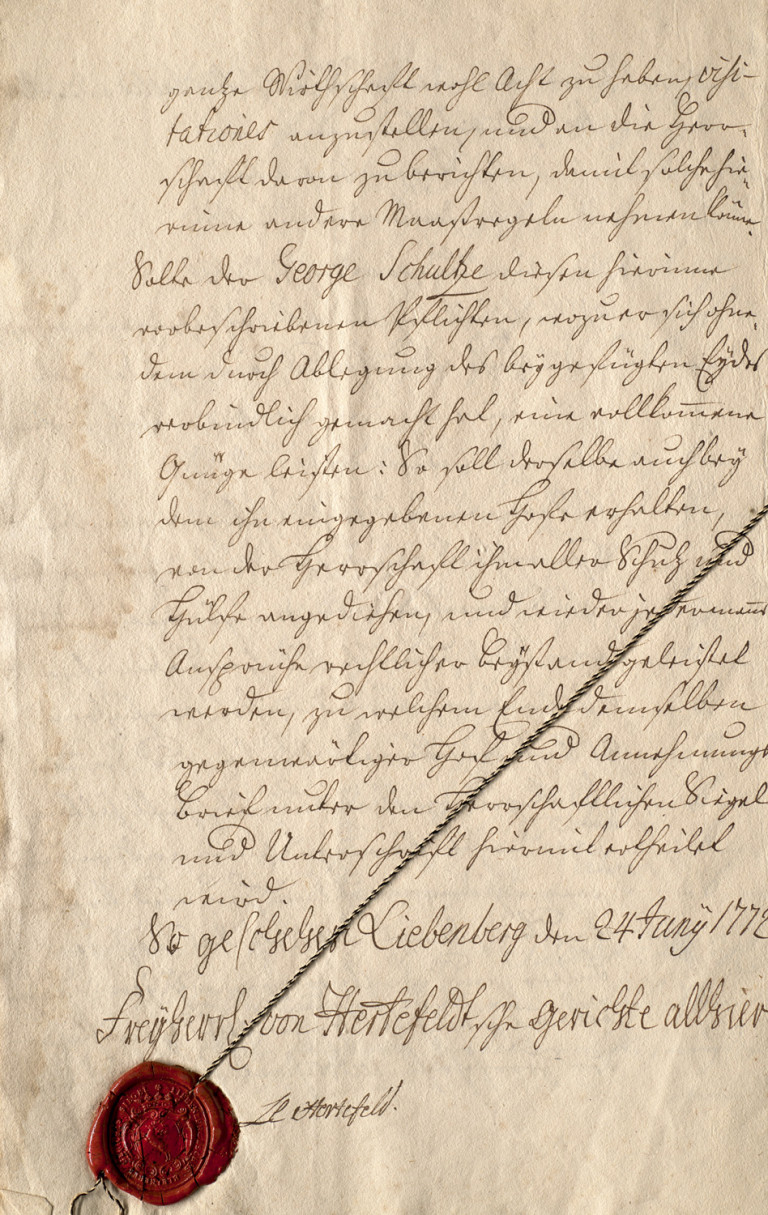 gantze Wirthschafft wohl Acht zu haben, visi-
tationes anzustellen, und an die Herr-
schafft davon zu berichten, damit solche hie-
rinne andere Maasregeln nehmen könne.
Solte der George Schultze diesen hierinne
vorbeschriebenen Pflichten, wozu er sich ohne-
dem durch Ablegung des beygefügten Eydes
verbindlich gemacht hat, eine vollkom̅ene
Gnüge leisten: So soll derselbe auch bey
dem ihn eingegebenen Hofe erhalten,
von der Herrschafft ihm aller Schutz und
Hülfe angediehen, und wieder jedermans
Ansprüche rechtlicher Beystand geleistet
werden, zu welchem Ende demselben
gegenwärtiger Hof und Annehmungs
Brief unter den Herrschafftlichen Siegel
und Unterschrifft hiermit ertheilet
wird.
So geschehen Liebenberg den 24 Juny 1772
Freyherrl. von Hertefeldtsche Gerichte allhier
Hertefeld.